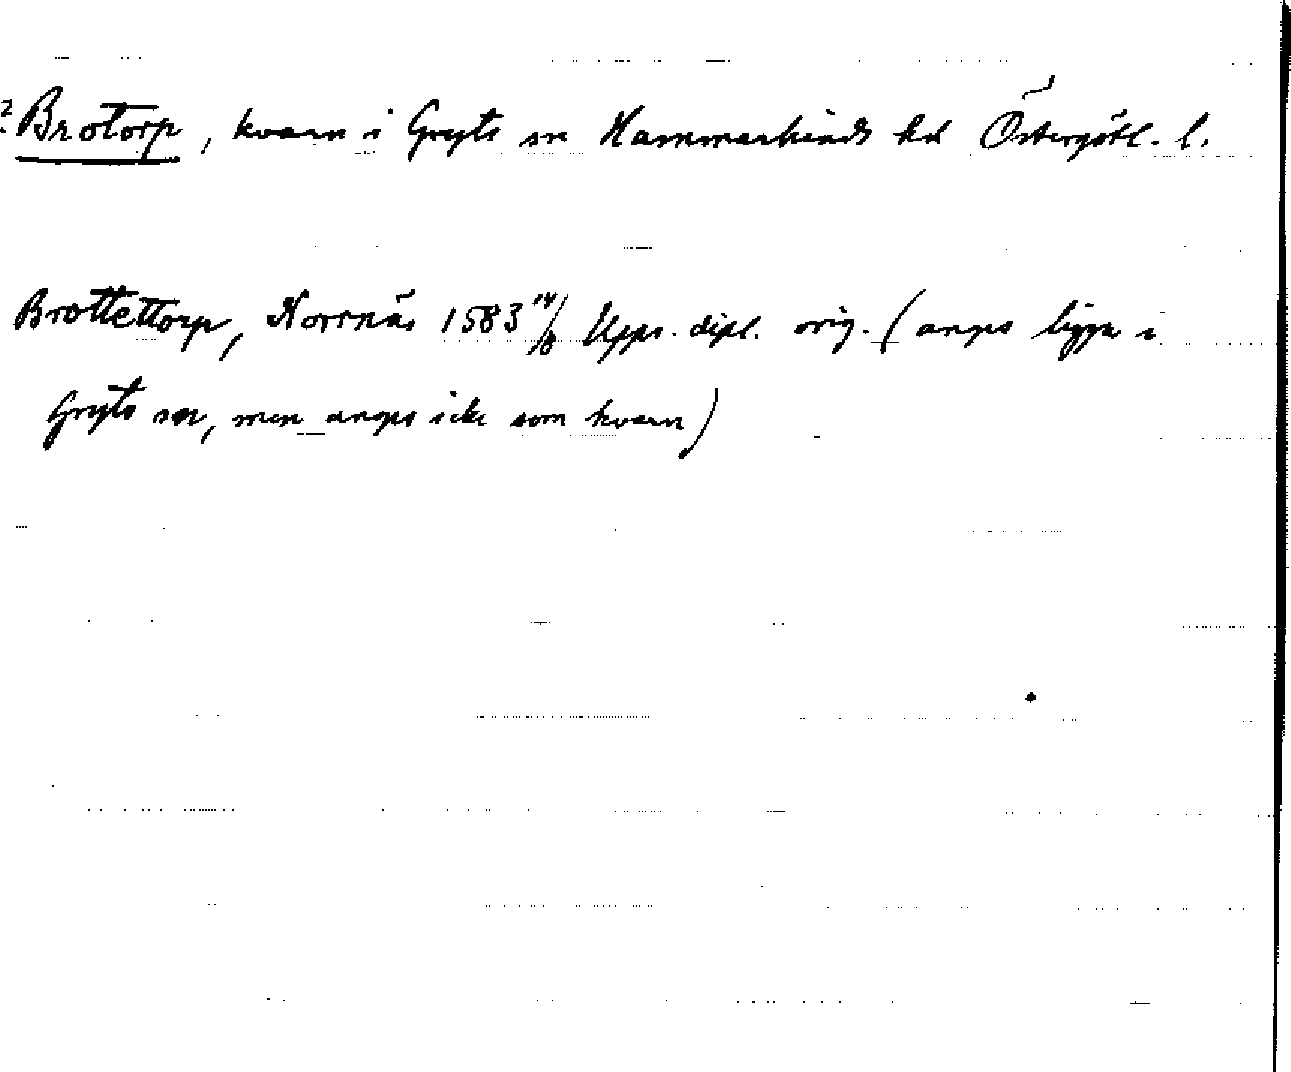 ? Brotorp, kvarn i Gryts sn Hammarkinds hd Östergötl. l.
Brottettorp, Norrnäs 1583 14/8 Upps. dipl. orig. (anges ligga i
Gryts sn, men anges icke som kvarn)